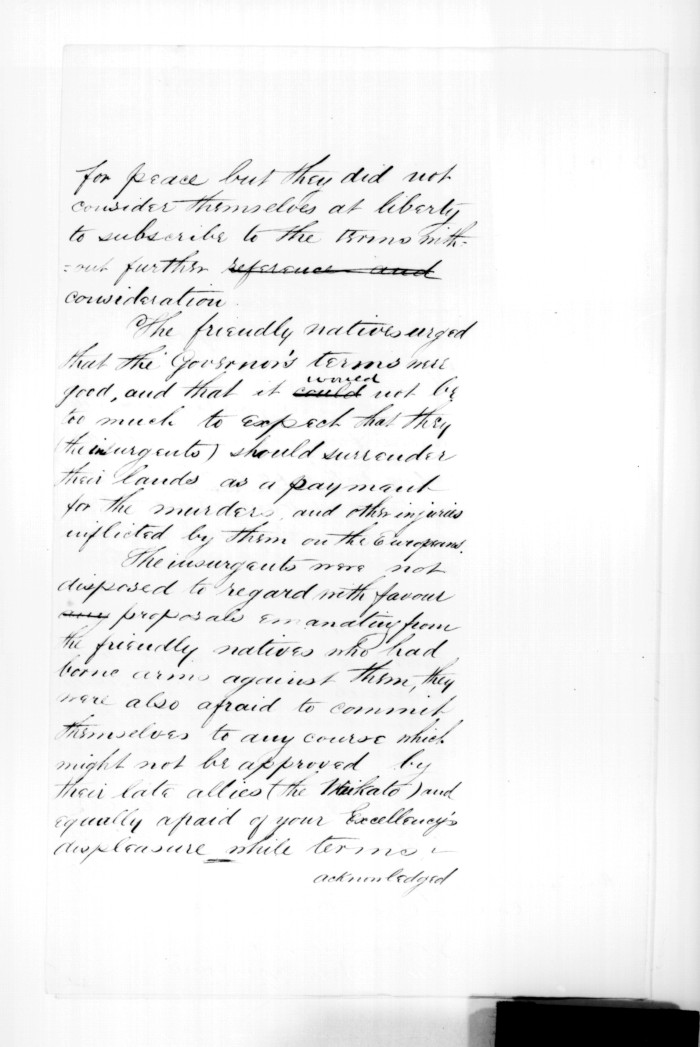 for peace but they did not
consider themselves at liberty
to subscribe to the terms with-
=out further reference and
consideration
The friendly natives urged
that the Governor's terms were
would
good, and that it could not be
too much to expect that they
(the insurgents) should surrender
their lands as a payment
for the murders and other injuries
inflicted by them on the Europeans.
The insurgents were not
disposed to regard with favour
any proposals emanating from
the friendly natives who had
borne arms against them, they
were also afraid to commit
themselves to any course which
might not be approved by
their late allies (the Waikato) and
equally afraid of your Excellency's
displeasure while terms -
acknowledged